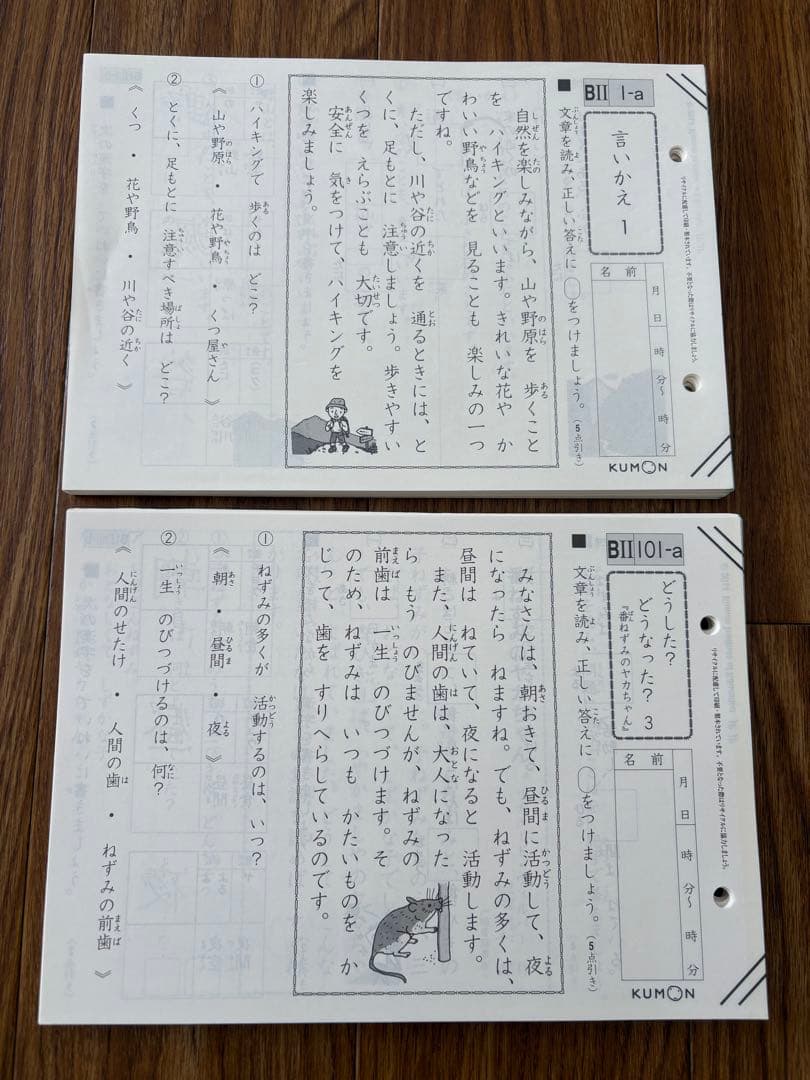 BⅡ 1-a
言いかえ 1
名前
月 日
時 分〜 時 分
KUMON
■ 文章を読み、正しい答えに ◯をつけましょう。（5点引き）
自然を楽しみながら、山や野原を 歩くこと
を ハイキングといいます。きれいな花や か
わいい野鳥などを 見ることも 楽しみの一つ
ですね。
ただし、川や谷の近くを 通るときには、と
くに、足もとに 注意しましょう。歩きやすい
くつを えらぶことも 大切です。
安全に 気をつけて、ハイキングを
楽しみましょう。
① ハイキングで 歩くのは どこ？
《 山や野原 ・ 花や野鳥 ・ くつ屋さん 》
② とくに、足もとに 注意すべき場所は どこ？
《 くつ ・ 花や野鳥 ・ 川や谷の近く 》
BⅡ 101-a
どうした？
どうなった？ 3
『番ねずみのヤカちゃん』
名前
月 日
時 分〜 時 分
KUMON
■ 文章を読み、正しい答えに ◯をつけましょう。（5点引き）
みなさんは、朝おきて、昼間に活動して、夜
になったら ねますね。でも、ねずみの多くは、
昼間は ねていて、夜になると 活動します。
また、人間の歯は、大人になった
ら もう のびませんが、ねずみの
前歯は 一生 のびつづけます。そ
のため、ねずみは いつも かたいものを か
じって、歯を すりへらしているのです。
① ねずみの多くが 活動するのは、いつ？
《 朝 ・ 昼間 ・ 夜 》
② 一生 のびつづけるのは、何？
《 人間のせたけ ・ 人間の歯 ・ ねずみの前歯 》